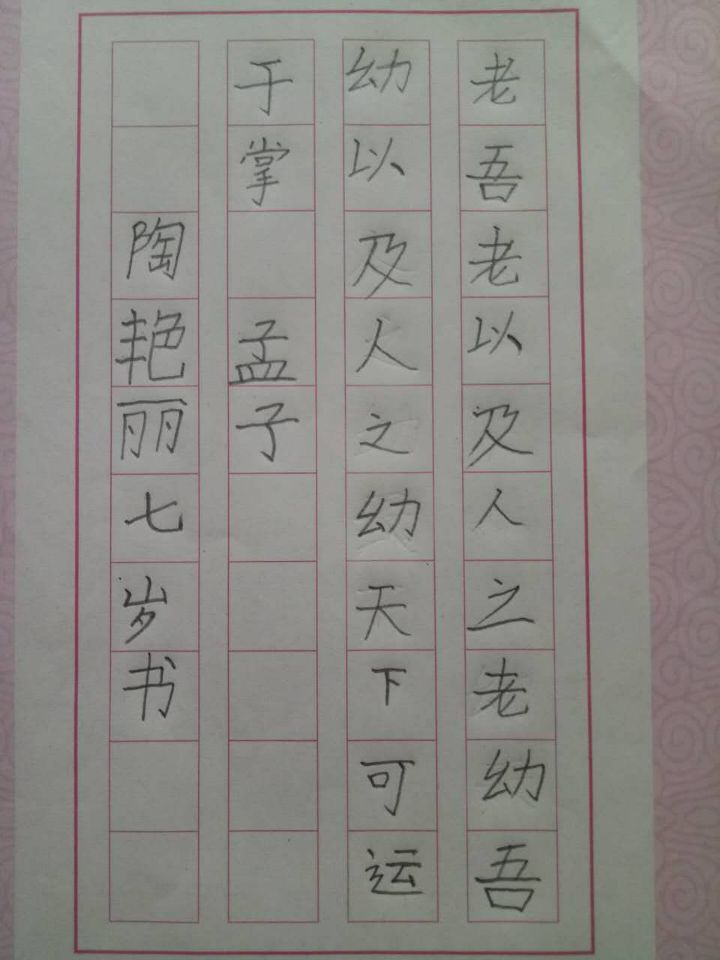 老吾老以及人之老幼吾
幼以及人之幼天下可运
于掌 孟子
陶艳丽七岁书